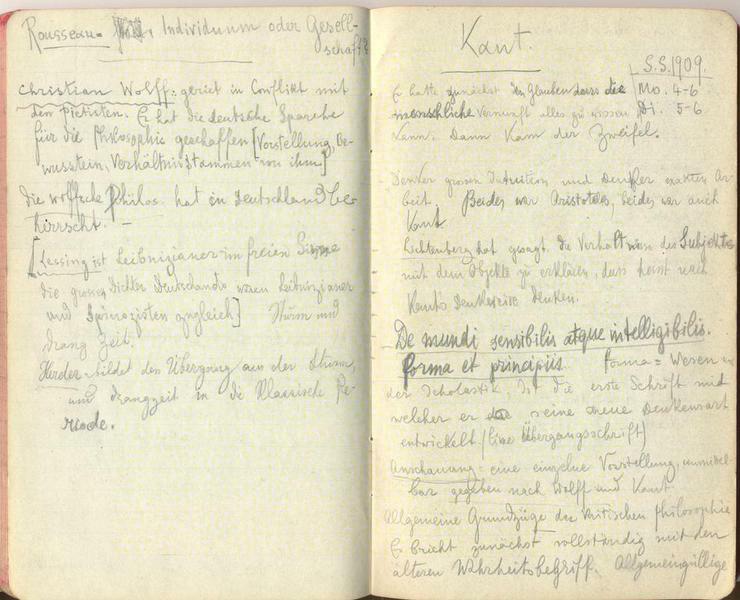 Rousseau = Individuum oder Gesell-
schaft?
Christian Wolff: geriet in Conflikt mit
den Pietisten. Er hat die deutsche Sprache
für die Philosophie geschaffen [Vorstellung, Be-
wusstein, Verhältnis stammen von ihm]
die wolffsche Philos. hat in Deutschland be-
herrscht. —
[Lessing ist Leibnizianer im freien Sinne
die grossen Dichter Deutschlands waren Leibnizianer
und Spinozisten zugleich] Sturm und
drang Zeit.
Herder bildet den Übergang aus der Sturm
und drangzeit in die Klassische Pe-
riode.
Kant.
S.S. 1909.
Mo. 4-6
Di. 5-6
Er hatte zunächst den Glauben dass die
menschliche Vernunft alles zu wissen
kann. Dann Kam der Zweifel.
Denker grossen Intuition und Denker exakten Ar-
beit. Beides war Aristoteles, beides war auch
Kant
Lichtenberg hat gesagt, die Verhältnisse des Subjekts
mit dem Objekte zu erklären, dass heisst nach
Kants Denkweise denken.
De mundi sensibilis atque intelligibilis.
forma et principiis. forma = Wesen in
der Scholastik, Ist die erste Schrift mit
welcher er seine neue Denkensart
entwickelt. (Eine Übergangsschrift)
Anschauung = eine einzelne Vorstellung, unmittel-
bar gegeben nach Wolff und Kant.
Allgemeine Grundzüge der kritischen Philosophie
Er bricht zunächst vollständig mit den
älteren Wahrheitsbegriff. Allgemeingültige